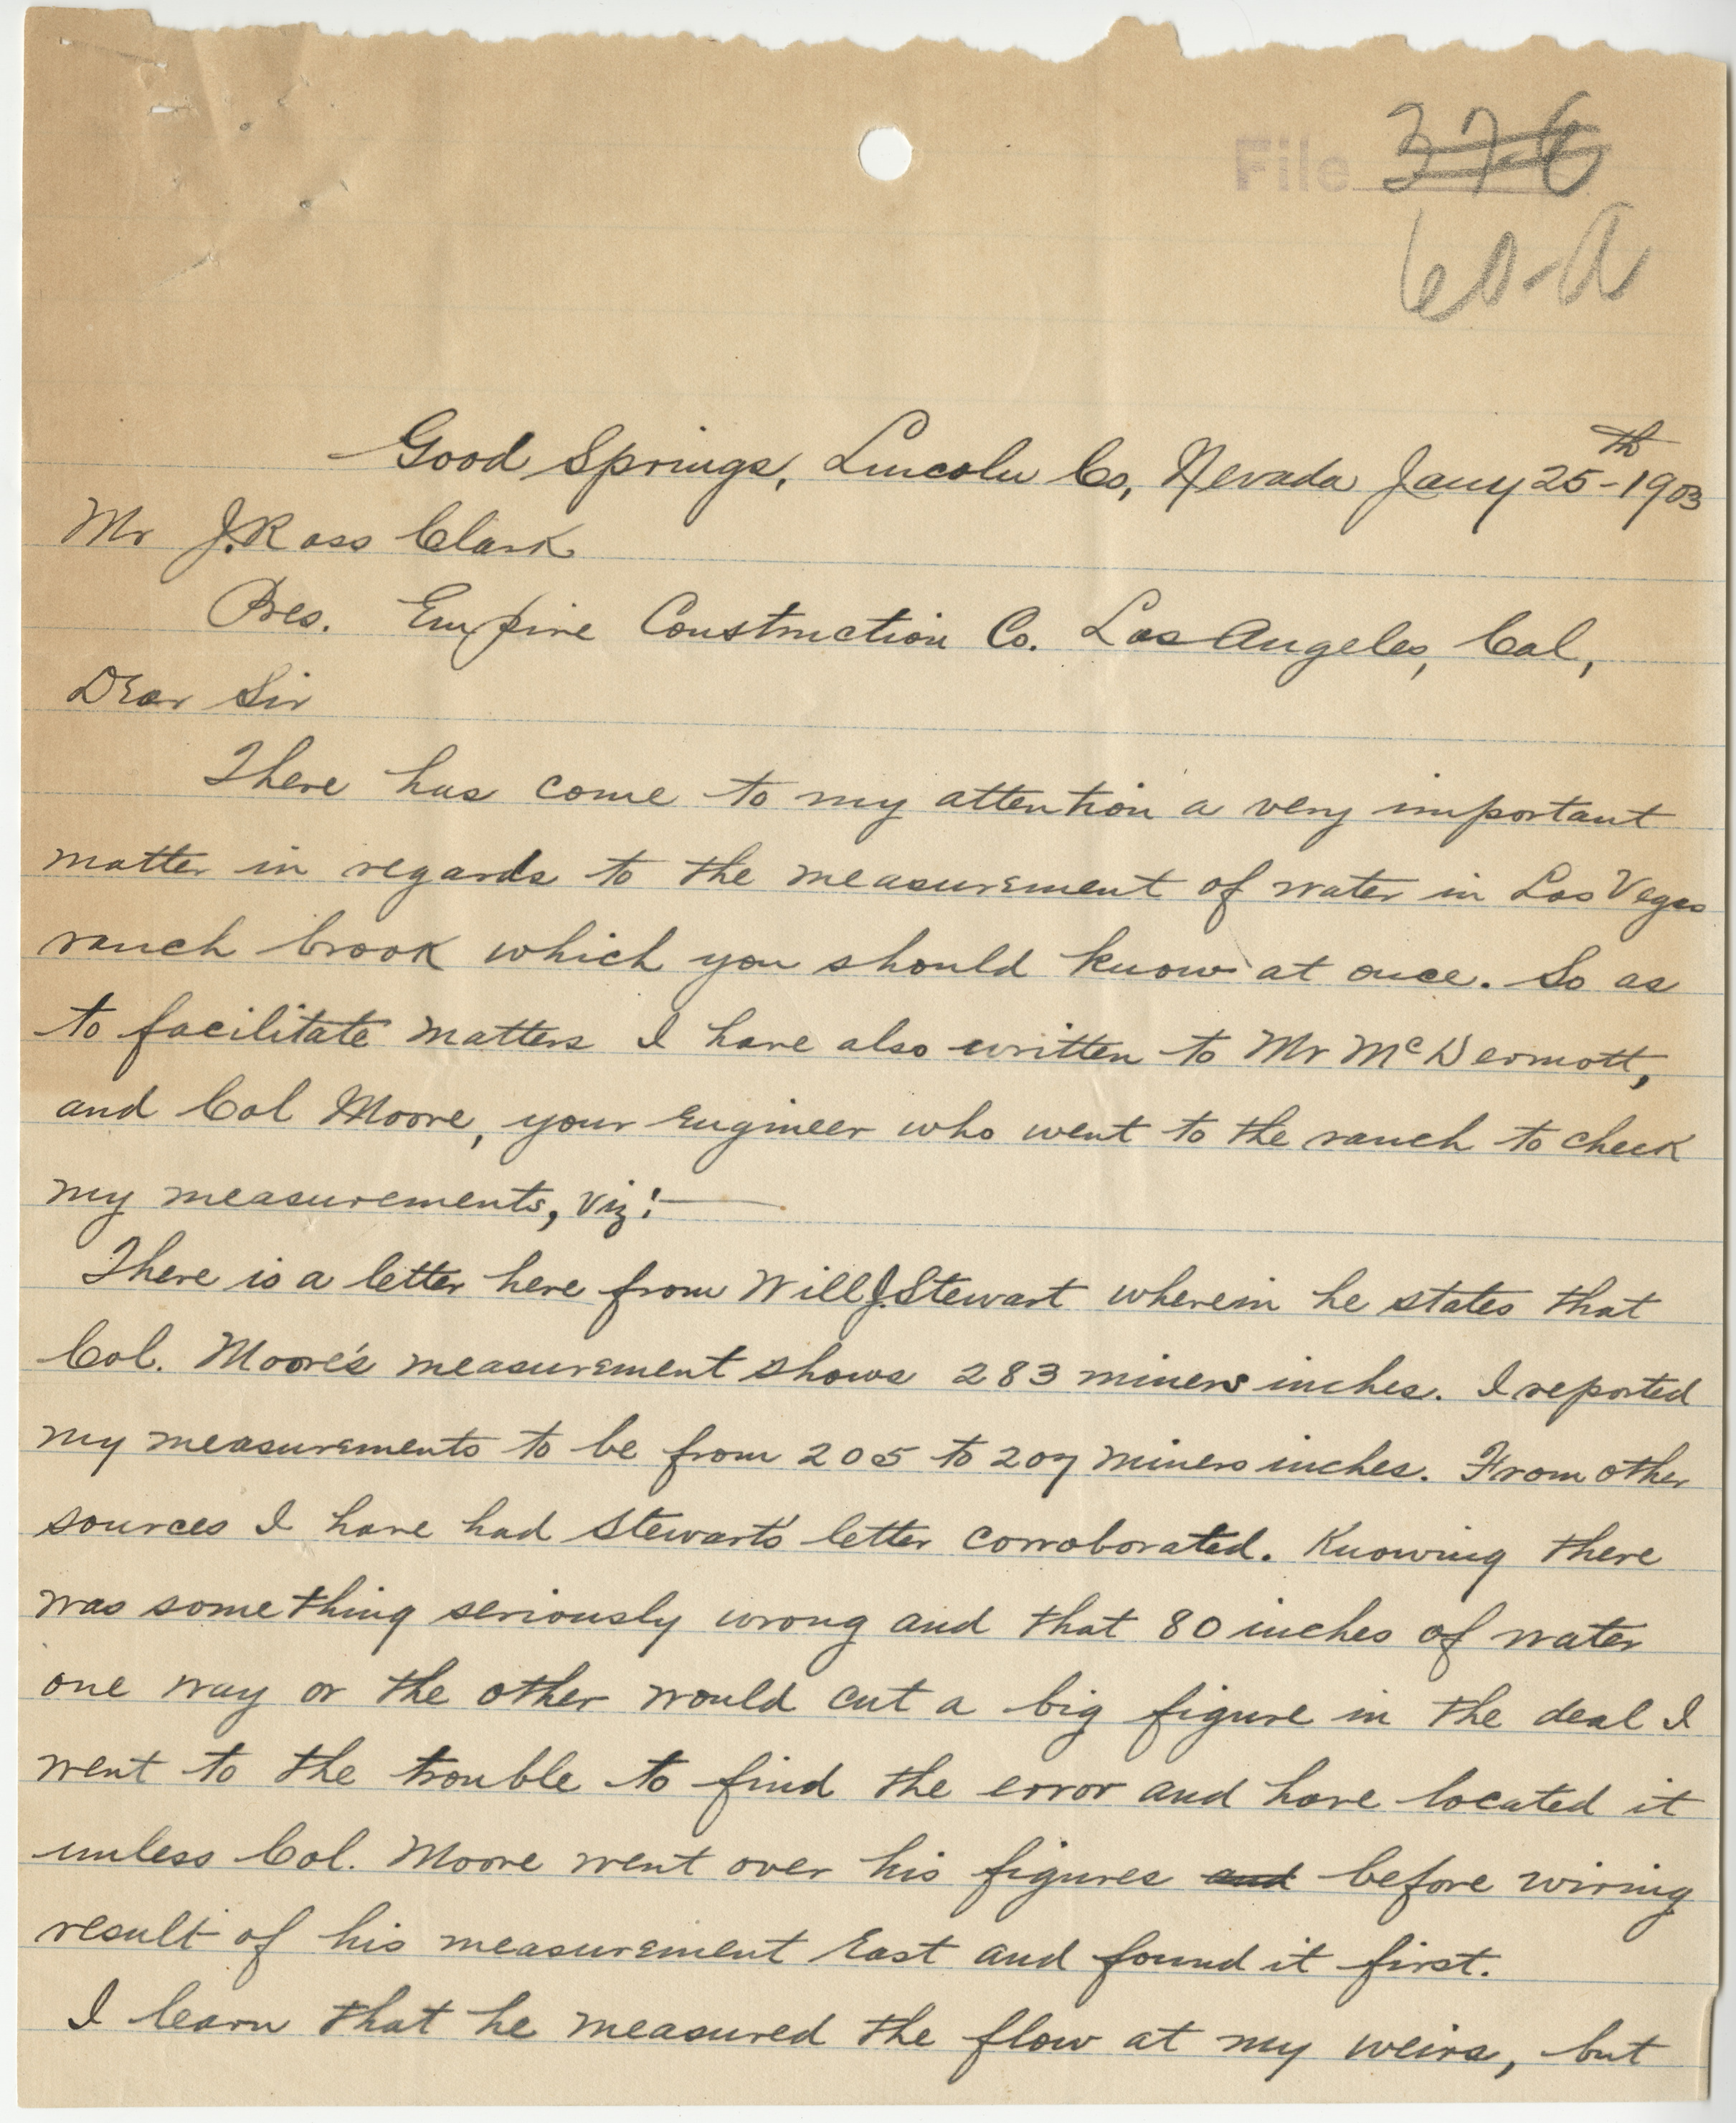 File 376
60-A
Good Springs, Lincoln Co, Nevada Jany 25th-1903
Mr J. Ross Clark
Pres. Empire Construction Co. Los Angeles, Cal,
Dear Sir
There has come to my attention a very important
matter in regards to the measurement of water in Las Vegas
ranch brook which you should know at once. So as
to facilitate matters I have also written to Mr McDermott,
and Col Moore, your Engineer who went to the ranch to check
my measurements, viz:—
There is a letter here from Will J. Stewart wherein he states that
Col. Moore's measurement shows 283 miners inches. I reported
my measurements to be from 205 to 207 miners inches. From other
sources I have had Stewart's letter corroborated. Knowing there
was something seriously wrong and that 80 inches of water
one way or the other would cut a big figure in the deal I
went to the trouble to find the error and have located it
unless Col. Moore went over his figures and before wiring
result of his measurement East and found it first.
I learn that he measured the flow at my weirs, but